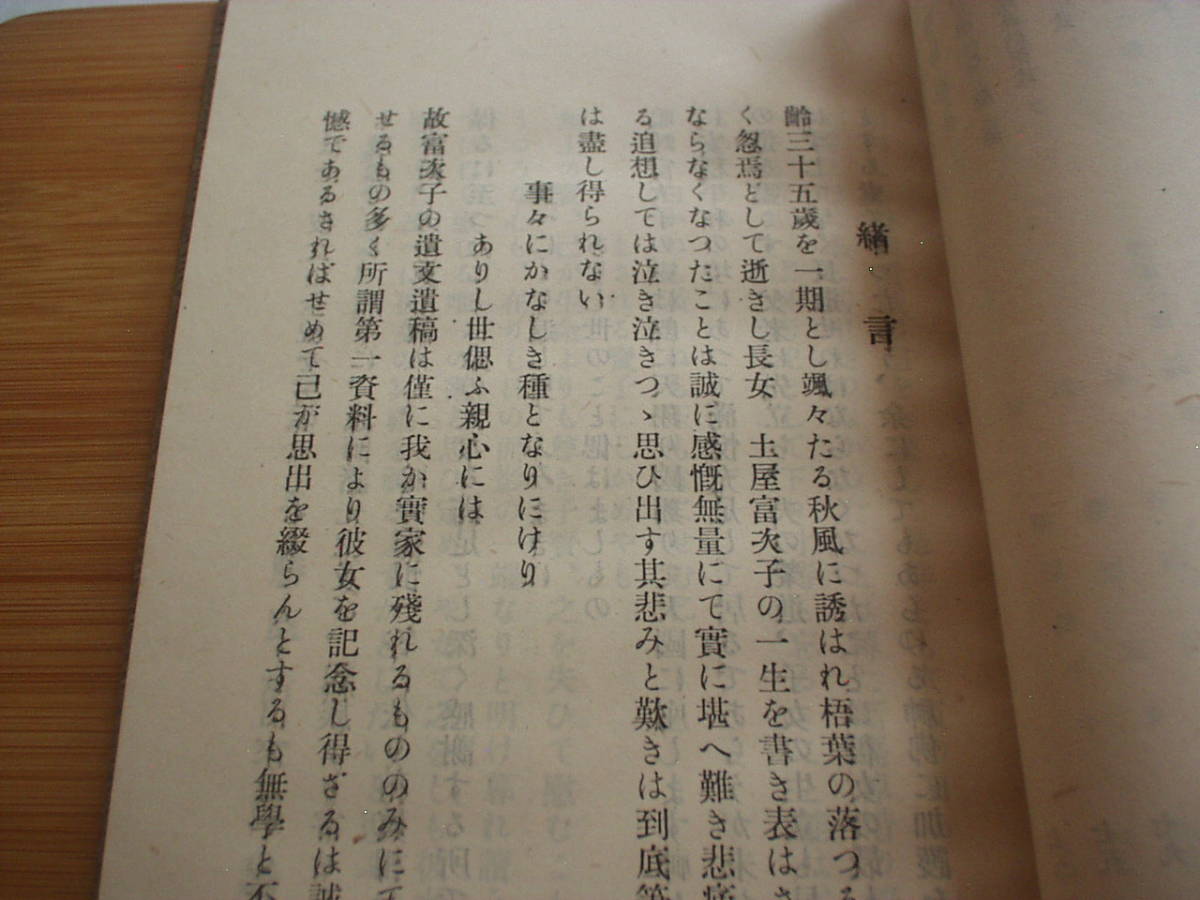 緒言
齢三十五歳を一期とし颯々たる秋風に誘はれ梧葉の落つる
く忽焉として逝きし長女 土屋富次子の一生を書き表はさ
ならなくなつたことは誠に感慨無量にて實に堪へ難き悲痛
る追想しては泣き泣きつゝ思ひ出す其悲みと歎きは到底筆
は盡し得られない
事々にかなしき種となりにけり
ありし世偲ふ親心には
故富次子の遺文遺稿は僅に我か實家に殘れるもののみにて
せるもの多く所謂第一資料により彼女を記念し得ざるは誠
憾であるさればせめて己が思出を綴らんとするも無學と不